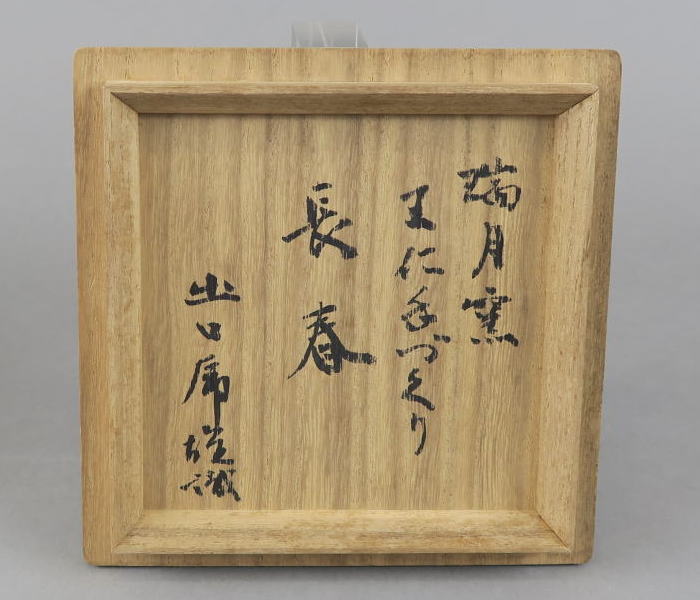 瑞月窯
王仁手づくり
長春
出口虎雄識